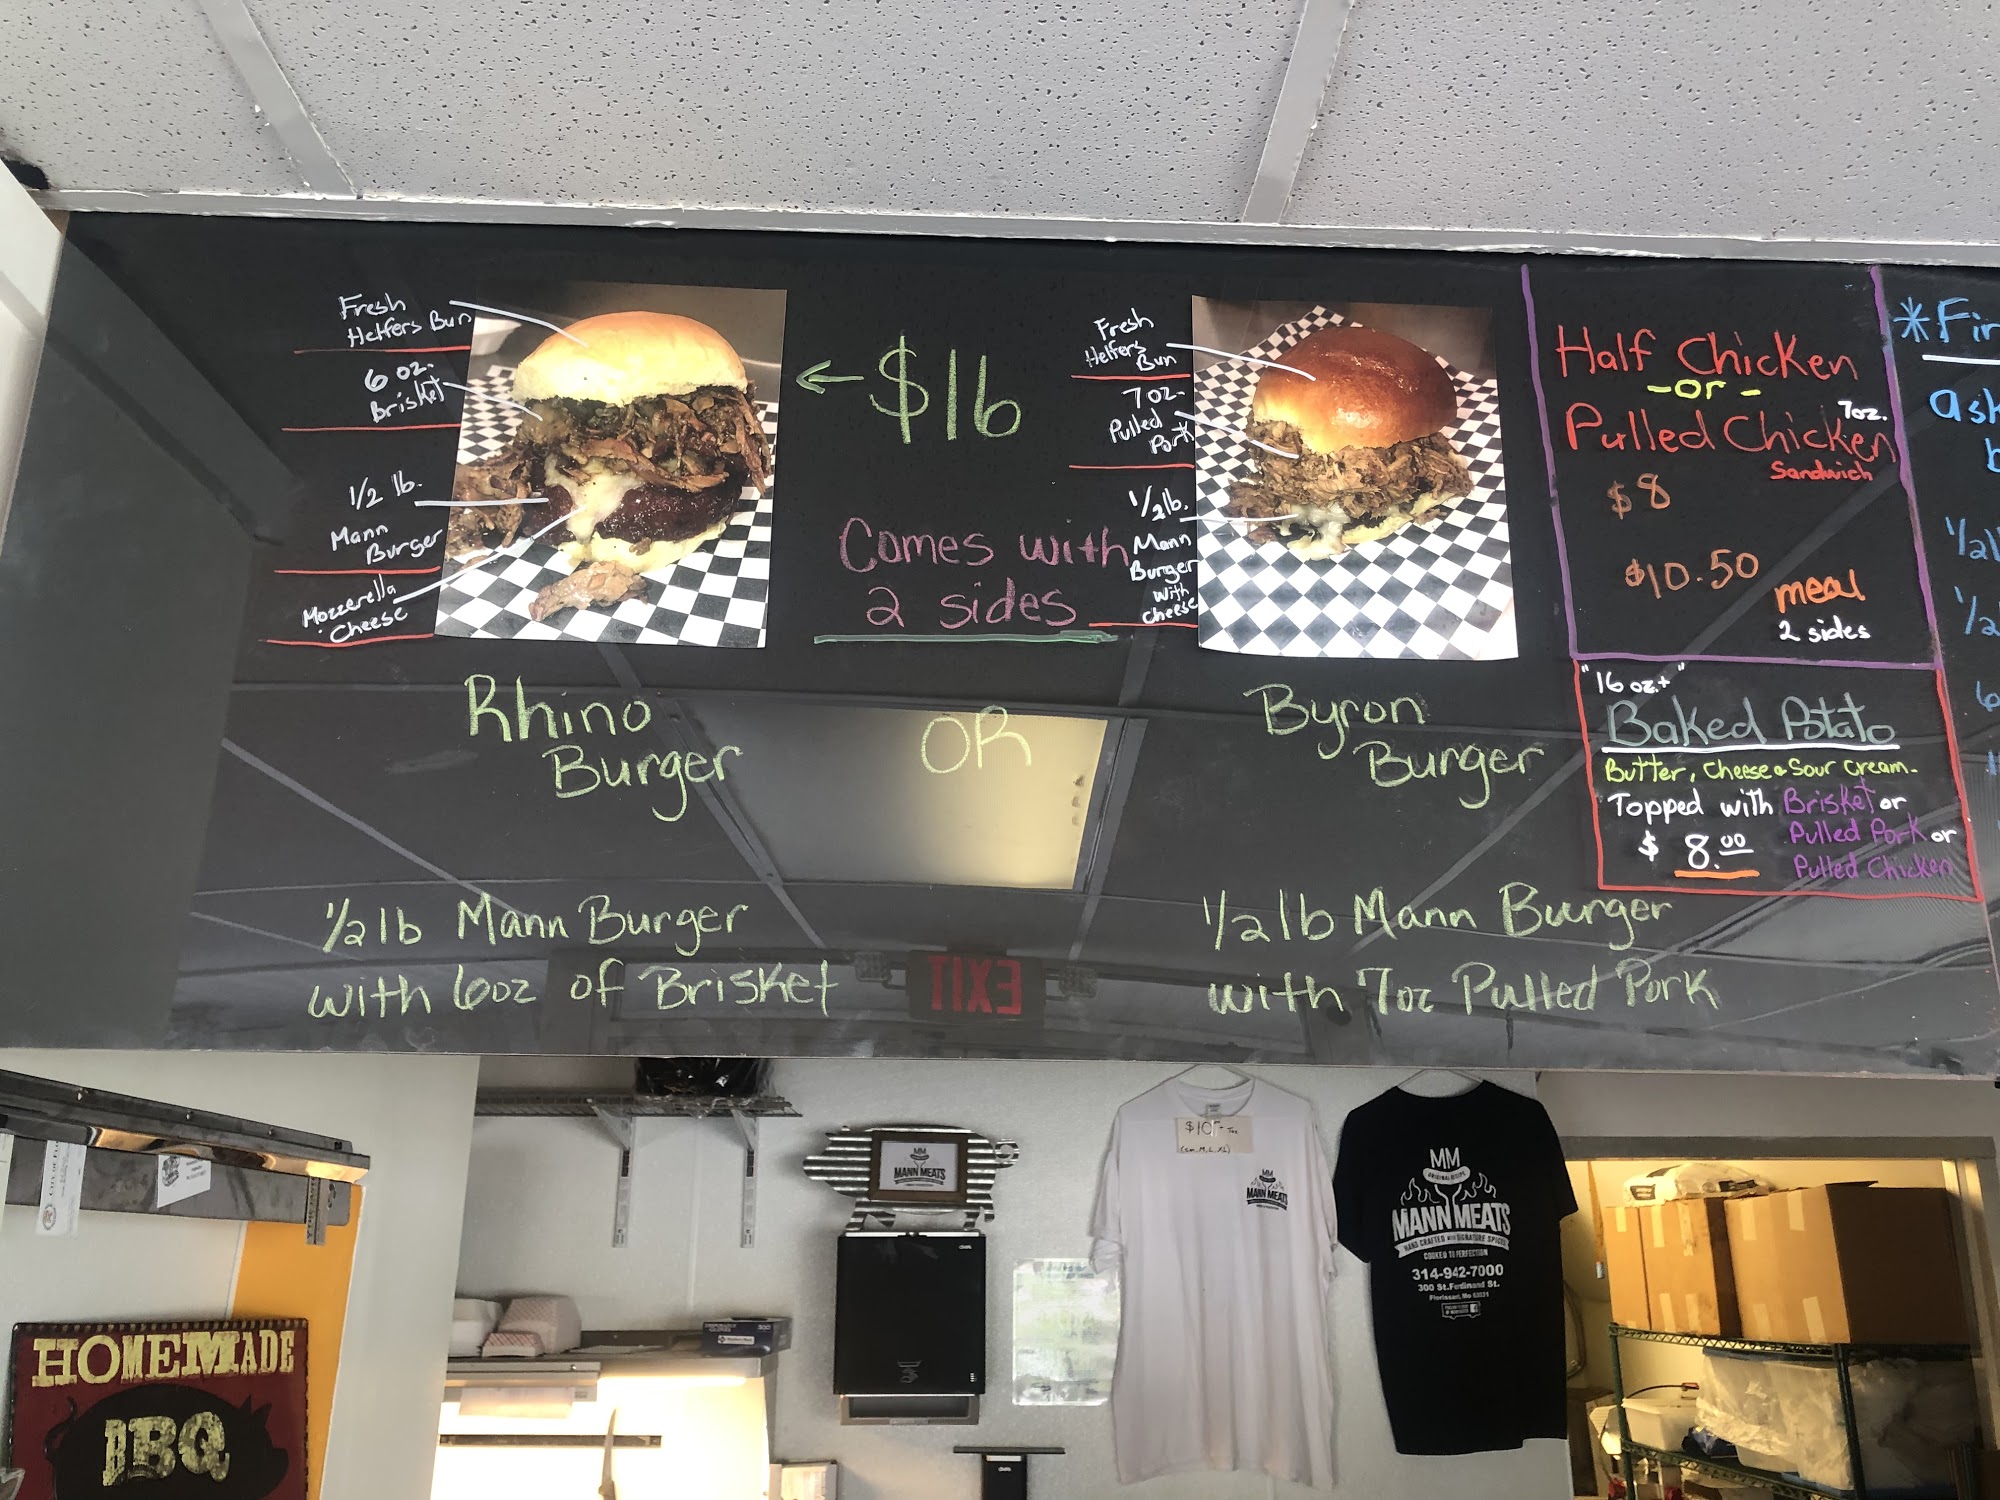 Fresh
Helfers Bun
6 oz.
Brisket
1/2 lb.
Mann
Burger
Mozzerella
Cheese
← $16
Comes with
2 sides
Fresh
Helfers
Bun
7 oz.
Pulled
Pork
1/2 lb.
Mann
Burger
with
cheese
Rhino
Burger
OR
Byron
Burger
1/2 lb Mann Burger
with 6oz of Brisket
1/2 lb Mann Burger
with 7oz Pulled Pork
Half Chicken
-or-
Pulled Chicken 7oz.
Sandwich
$8
$10.50 meal
2 sides
"16 oz.+"
Baked Potato
Butter, Cheese & Sour Cream.
Topped with Brisket or
Pulled Pork or
Pulled Chicken
$ 8.00
*Fir
ask
1/2
1/2
EXIT
HOMEMADE
BBQ
MM
MANN MEATS
$10 + Tax
(sm, M, L, XL)
MM
MANN MEATS
MM
ORIGINAL RECIPE
MANN MEATS
HAND CRAFTED WITH SIGNATURE SPICES
COOKED TO PERFECTION
314-942-7000
300 St. Ferdinand St.
Florissant, Mo 63031